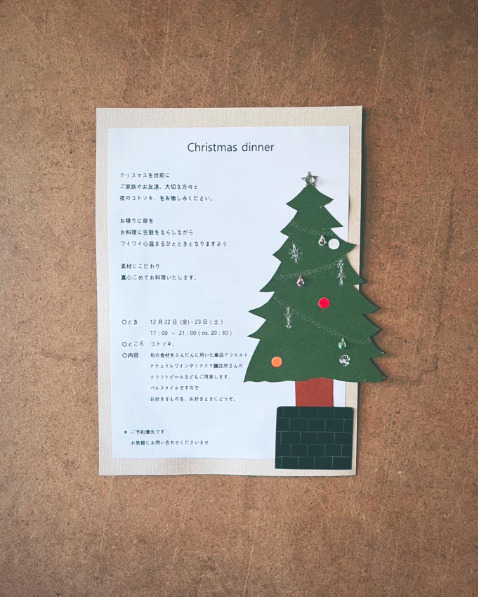 Christmas dinner
クリスマスを目前に
ご家族やお友達、大切な方々と
夜のコトツキ、をお愉しみください。
お喋りに頬を
お料理に舌鼓をならしながら
ワイワイ心温まるひとときとなりますよう
素材にこだわり
真心こめてお料理いたします。
○とき 12月22日(金)・23日(土)
17:00 ～ 21:00 (os. 20:30)
○ところ コトツキ、
○内容 旬の食材をふんだんに用いた単品アラカルト
ナチュラルワインや 醸造所さんの
クラフトビールなどもご用意します。
バルスタイルですので
お好きなものを、お好きときにどうぞ。
＊ ご予約優先です
お気軽にお問い合わせくださいませ